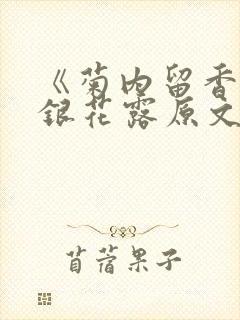 《菊内留香
銀花露原文
苜蓿果子